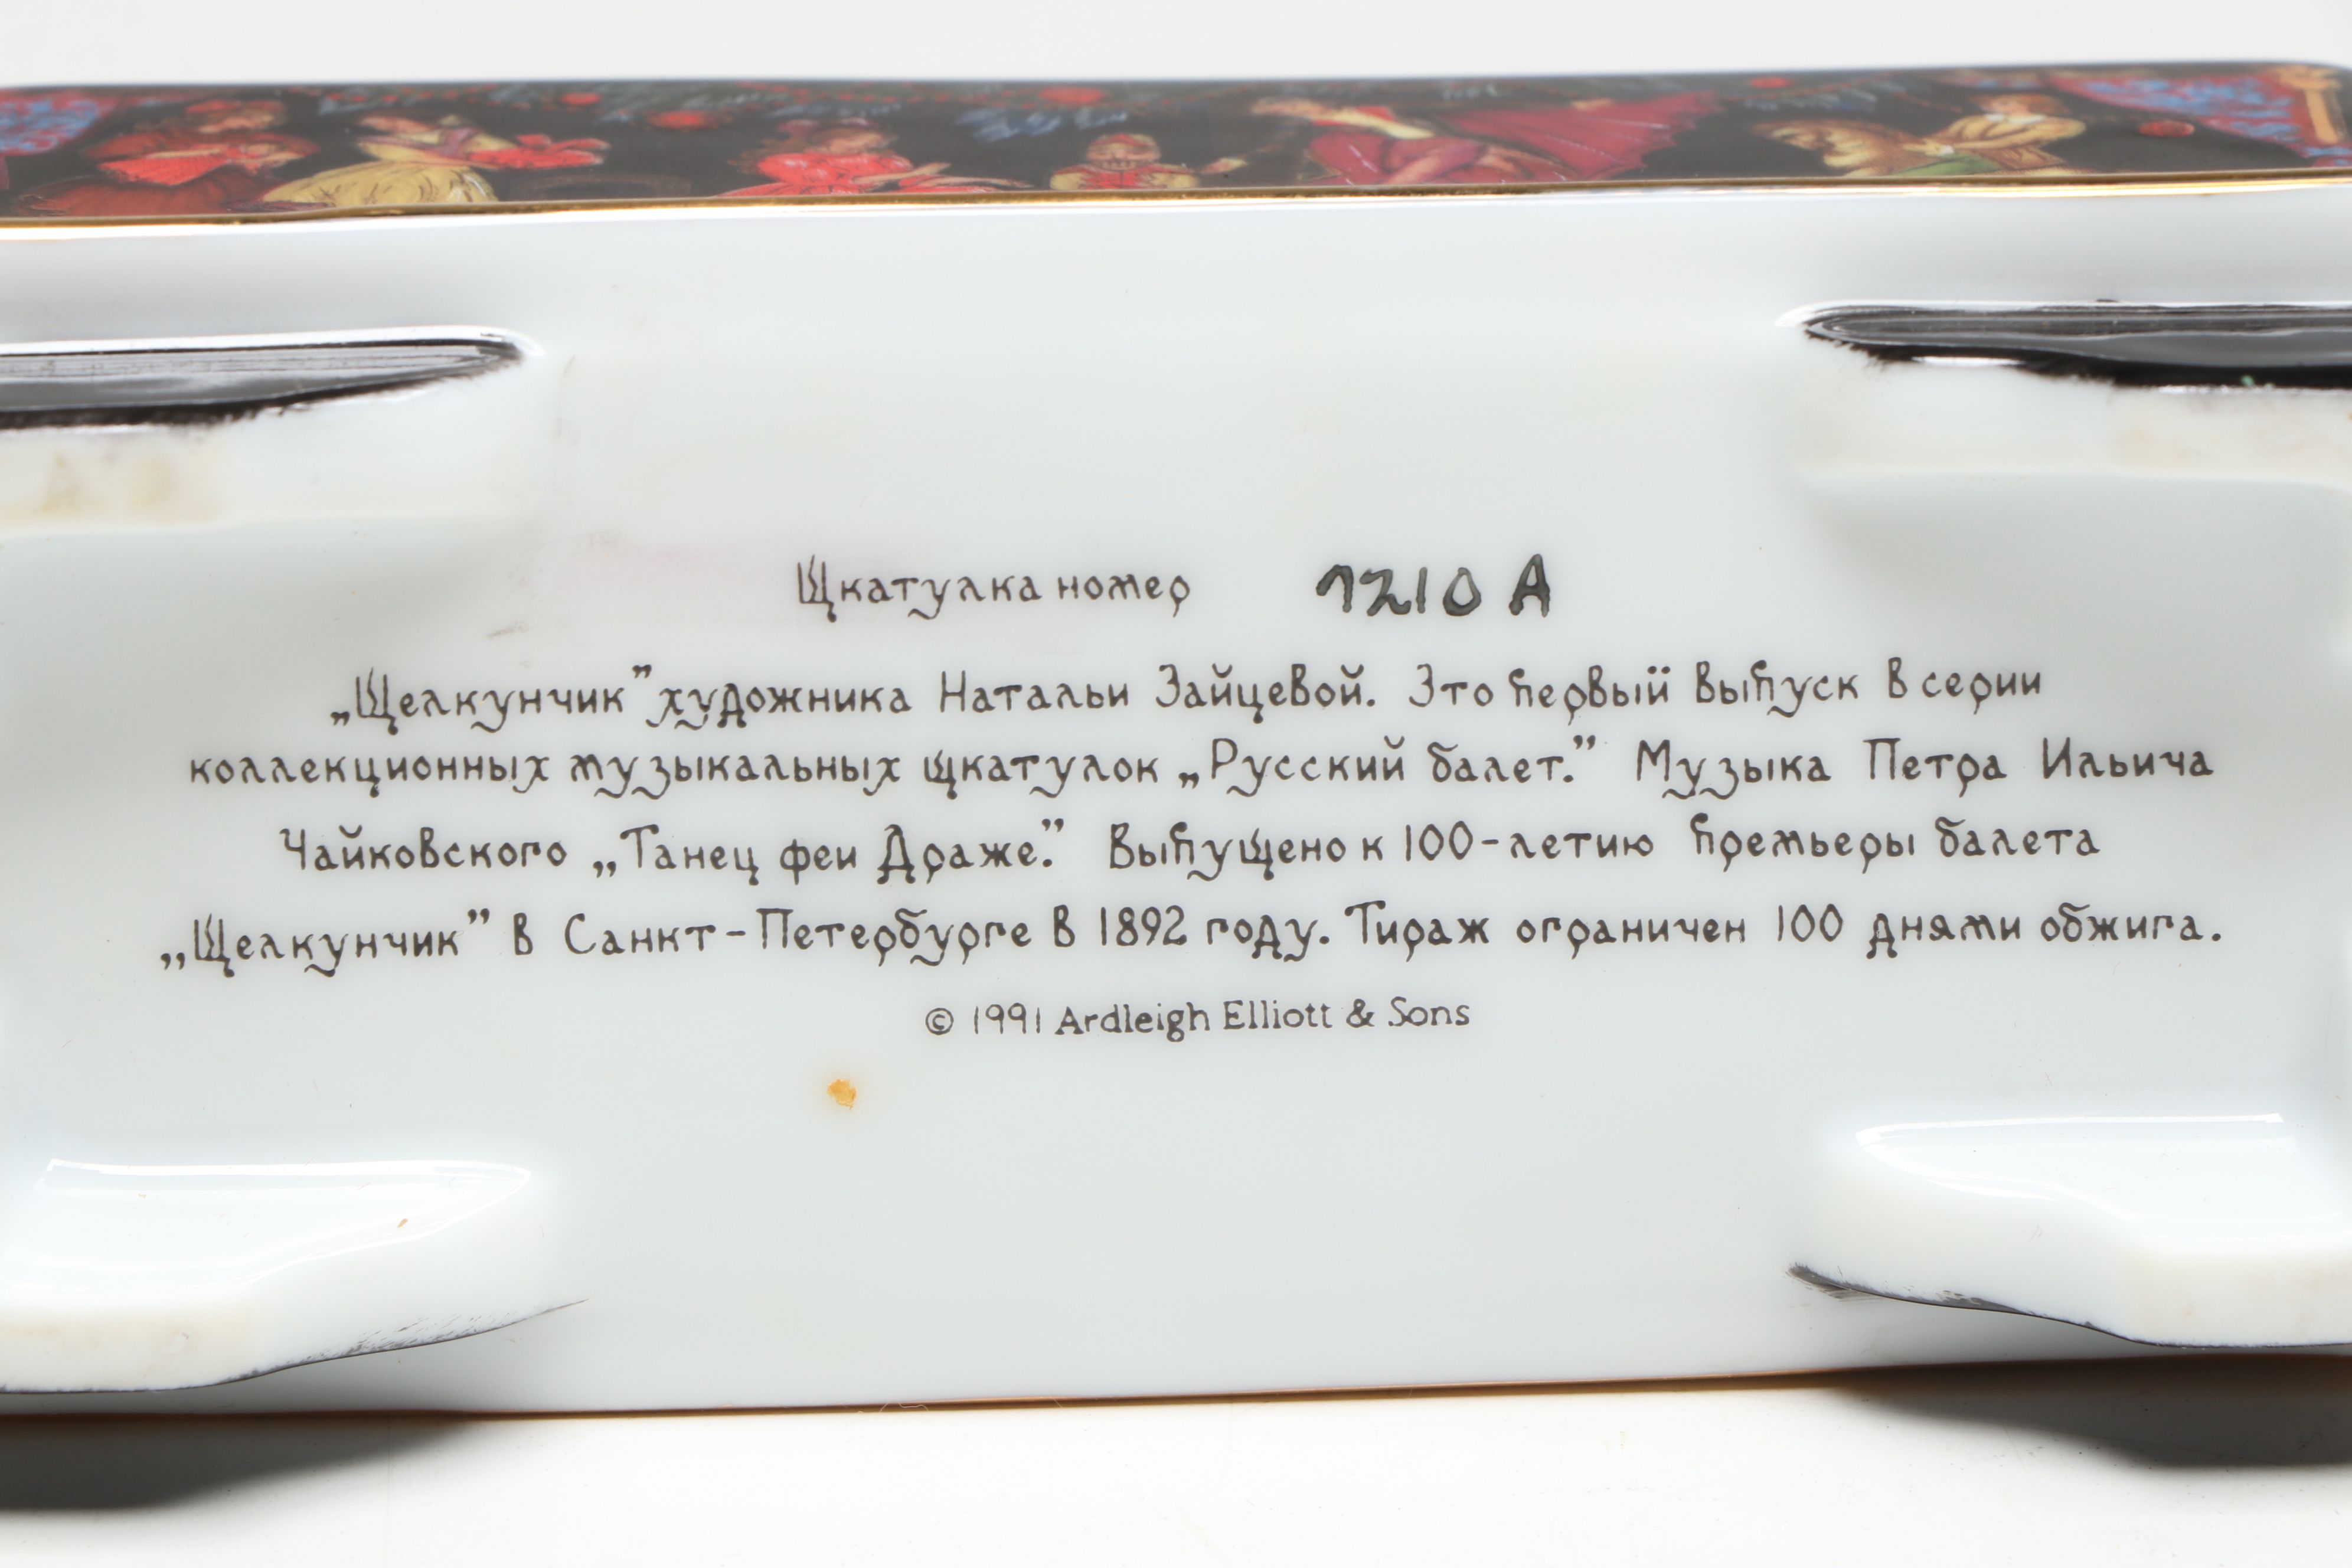 Щкатулка номер 1210 A
„Щелкунчик” художника Натальи Зайцевой. Это первый выпуск в серии
коллекционных музыкальных щкатулок „Русский балет.” Музыка Петра Ильича
Чайковского „Танец феи Драже.” Выпущено к 100-летию премьеры балета
„Щелкунчик” в Санкт-Петербурге в 1892 году. Тираж ограничен 100 днями обжига.
© 1991 Ardleigh Elliott & Sons